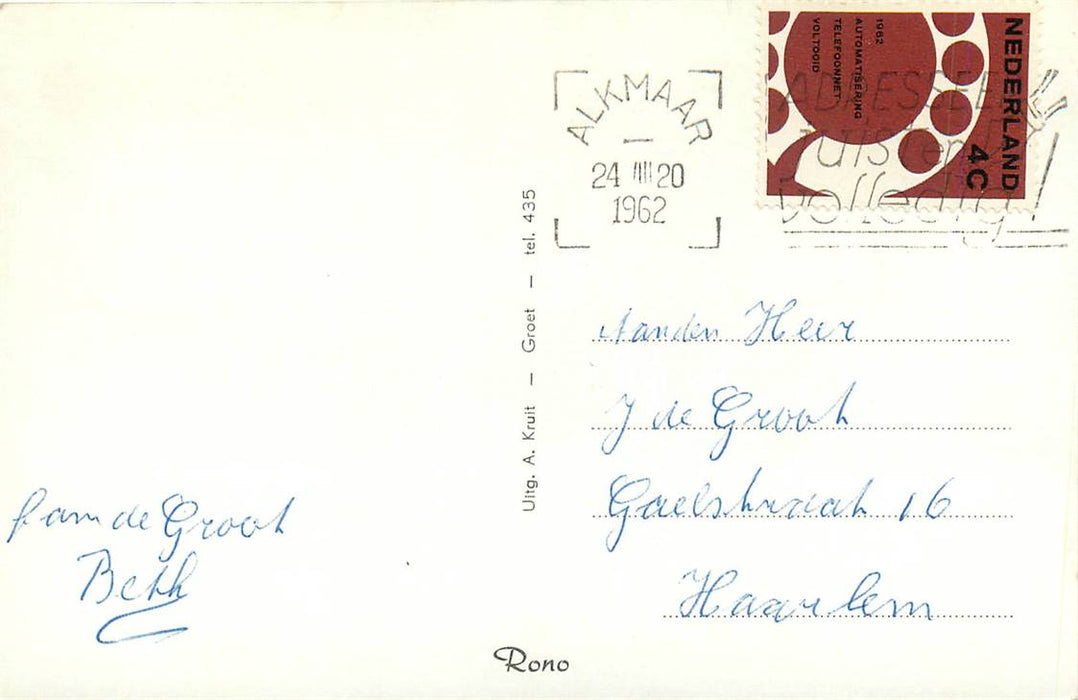 NEDERLAND
4C
1962
AUTOMATISERING
TELEFOONNET
VOLTOOID
ALKMAAR
24 IIII 20
1962
ADRESSEER
JUIST en
volledig!
Uitg. A. Kruit — Groet — tel. 435
Aan den Heer
J de Groot
Gaelstraat 16
Haarlem
fam de Groot
Rono